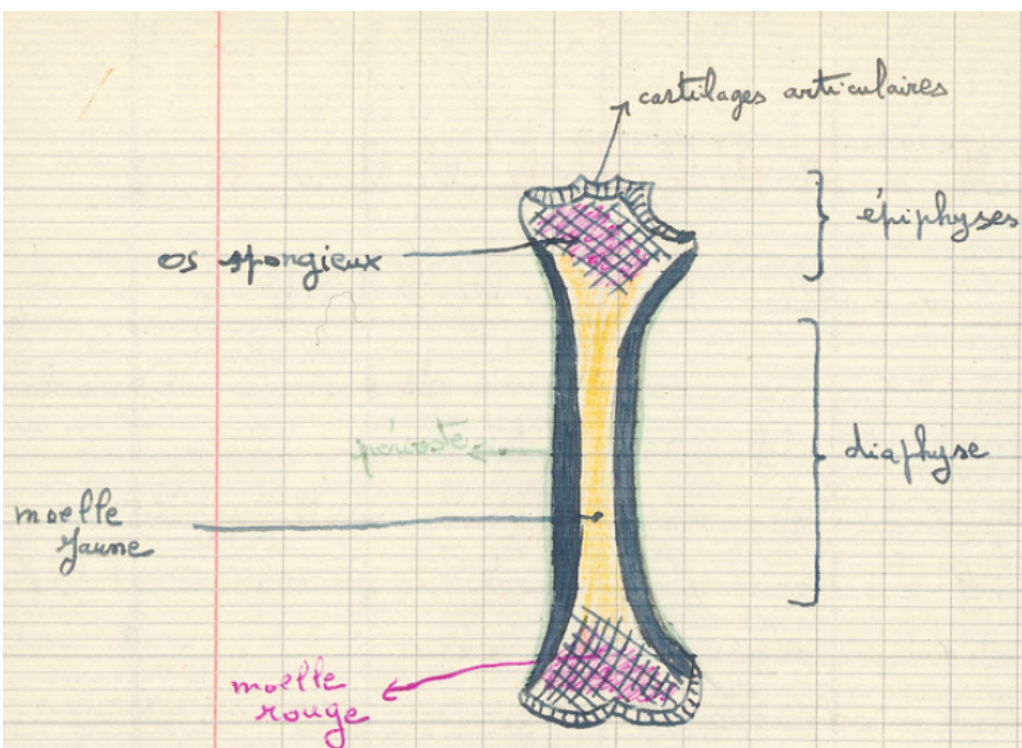 cartilages articulaires
épiphyses
os spongieux
périoste
diaphyse
moelle
jaune
moelle
rouge